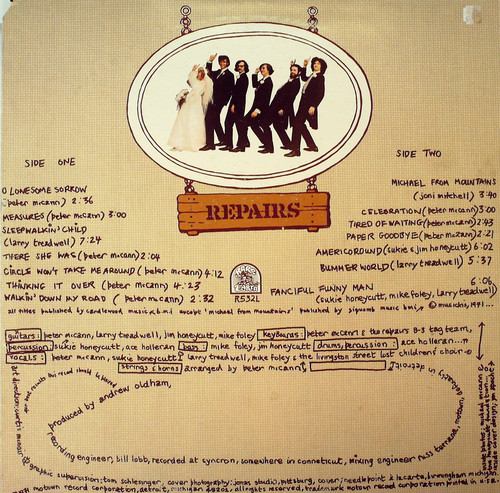 SIDE ONE
O LONESOME SORROW
(peter mccann) 2:36
MEASURES (peter mccann) 3:00
SLEEPWALKIN' CHILD
(larry treadwell) 7:24
THERE SHE WAS (peter mccann) 2:04
CIRCLE WON'T TAKE ME AROUND (peter mccann) 4:12
THINKING IT OVER (peter mccann) 4:23
WALKIN' DOWN MY ROAD (peter mccann) 2:32
REPAIRS
R532L
SIDE TWO
MICHAEL FROM MOUNTAINS
(joni mitchell) 3:40
CELEBRATION (peter mccann) 3:00
TIRED OF WAITING (peter mccann) 2:43
PAPER GOODBYE (peter mccann) 2:21
AMERICOROUND (sukie & jim honeycutt) 6:02
BUMMER WORLD (larry treadwell) 5:37
FANCIFUL FUNNY MAN 6:06
(sukie honeycutt, mike foley, larry treadwell)
all titles published by candlewood music, b.m.i except 'michael from mountains' published by siquomb music bmi,
guitars: peter mccann, larry treadwell, jim honeycutt, mike foley keyboards: peter mccann & the repairs B-3 tag team,
percussion: sukie honeycutt, ace holleran bass: mike foley, jim honeycutt drums, percussion: ace holleran
vocals: peter mccann, sukie honeycutt, larry treadwell, mike foley & the livingston street lost children's choir
strings & horns arranged by peter mccann
produced by andrew oldham,
recording engineer, bill lobb, recorded at syncron, somewhere in connecticut, mixing engineer russ terrana, motown,
graphic supervision: tom schlesinger, cover photography: jonas studio, pittsburg, cover/needlepoint à la carte, birmingham michigan
motown record corporation, detroit, michigan 48201, all rights reserved, trademark motown record corporation printed in u.s.a.